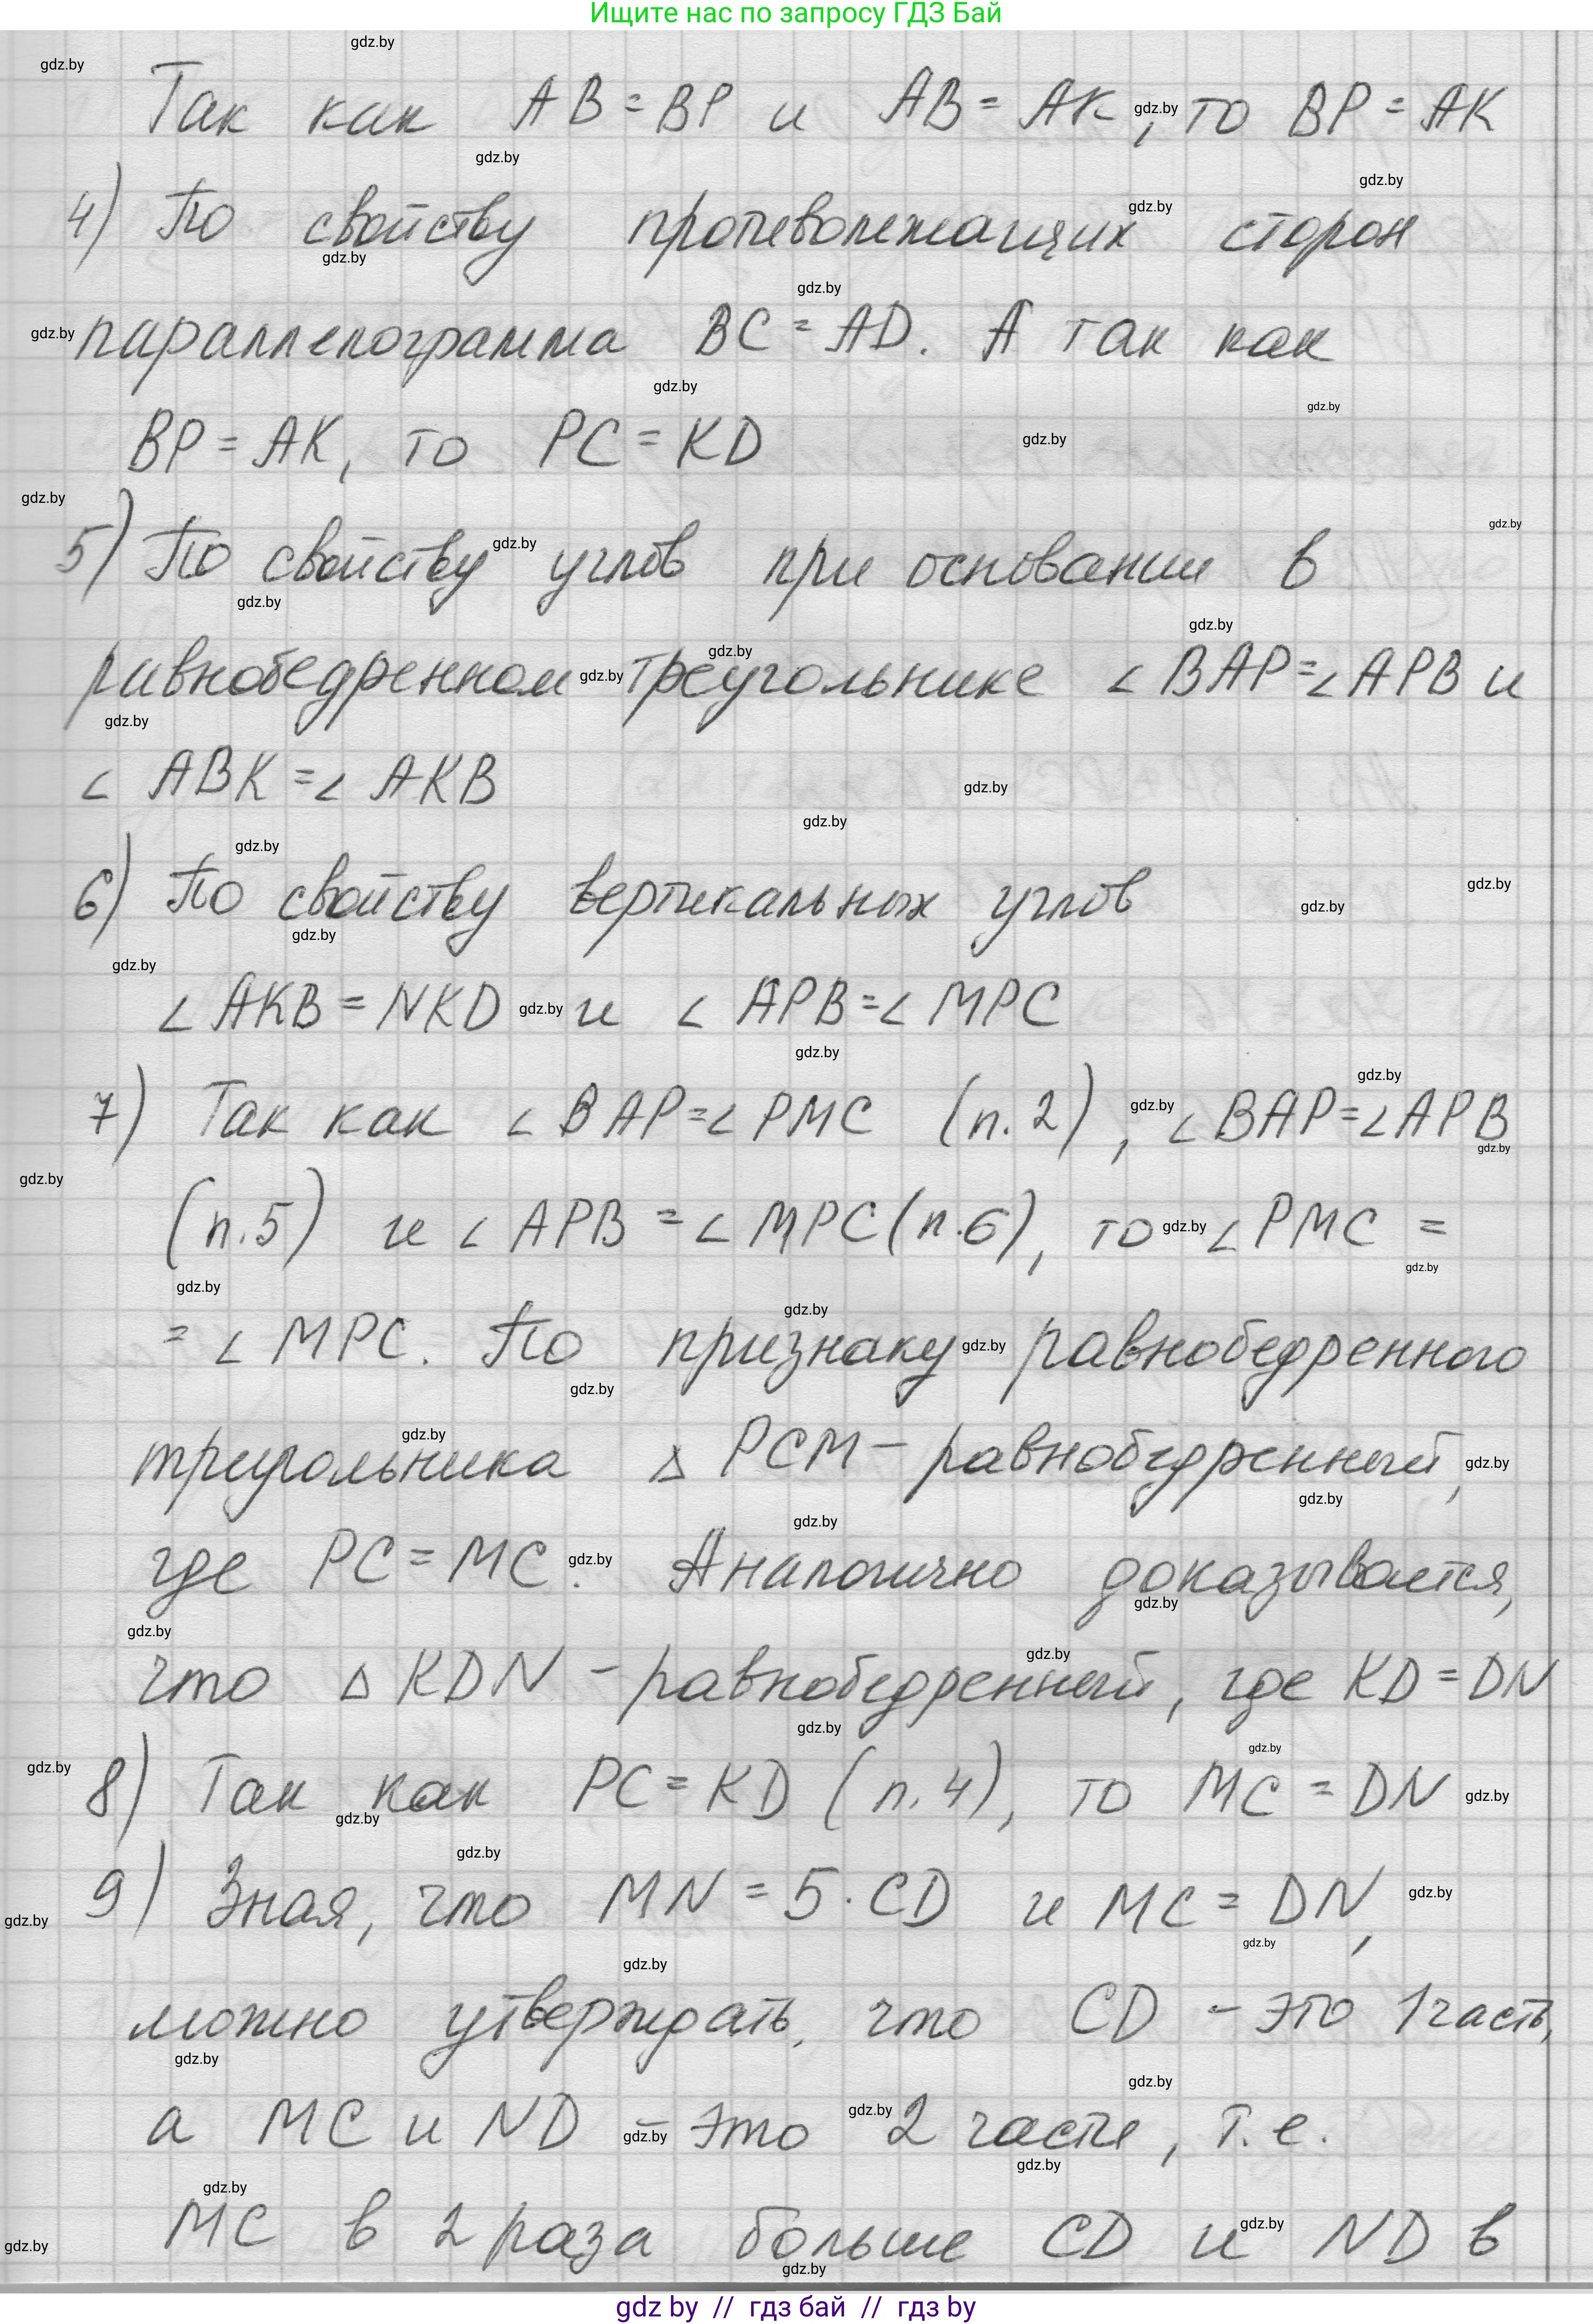 Ищите нас по запросу ГДЗ Бай
Так как AB = BP и AB = AK, то BP = AK
4) По свойству противолежащих сторон
параллелограмма BC = AD. А так как
BP = AK, то PC = KD
5) По свойству углов при основании в
равнобедренном треугольнике ∠BAP = ∠APB и
∠ABK = ∠AKB
6) По свойству вертикальных углов
∠AKB = NKD и ∠APB = ∠MPC
7) Так как ∠BAP = ∠PMC (п.2), ∠BAP = ∠APB
(п.5) и ∠APB = ∠MPC (п.6), то ∠PMC =
= ∠MPC. По признаку равнобедренного
треугольника △PCM – равнобедренный,
где PC = MC. Аналогично доказывается,
что △KDN – равнобедренный, где KD = DN
8) Так как PC = KD (п.4), то MC = DN
9) Зная, что MN = 5 · CD и MC = DN,
можно утверждать, что CD – это 1 часть,
а MC и ND – это 2 части, т.е.
MC в 2 раза больше CD и ND в
gdz by // гдз бай // гдз by